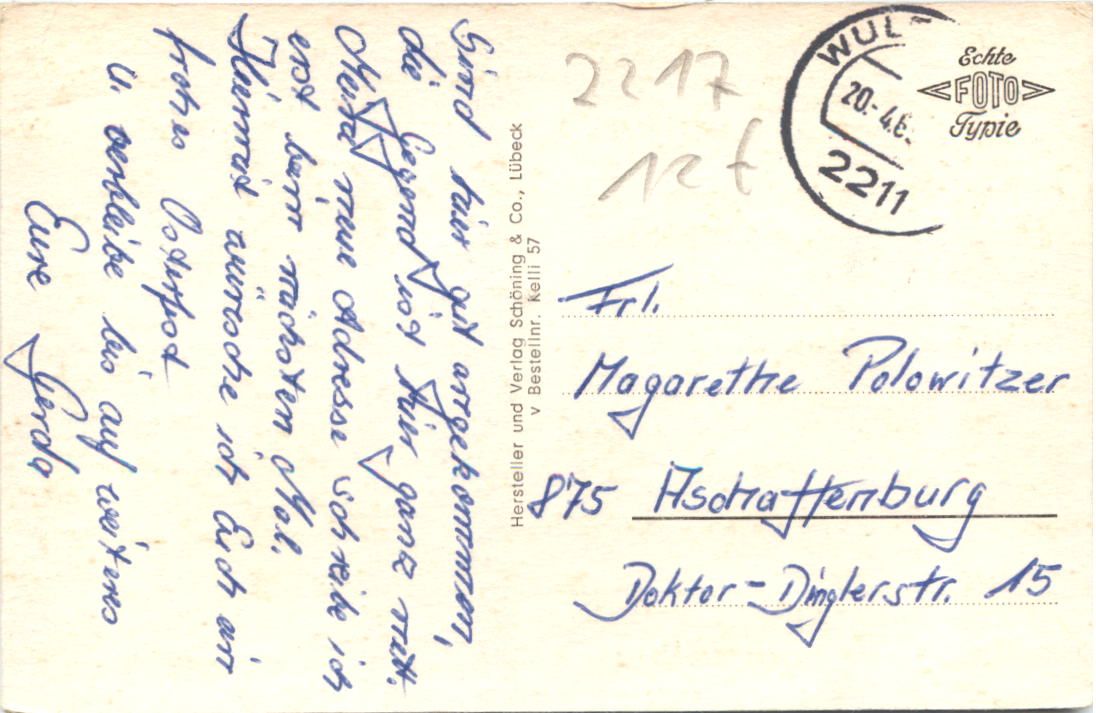 Sind hier gut angekommen,
die Gegend ist hier ganz nett.
Meine neue Adresse schreibe ich
erst beim nächsten Mal.
Hiermit wünsche ich Euch ein
frohes Osterfest
u. verbleibe bis auf weiteres
Eure Gerda
Hersteller und Verlag Schöning & Co., Lübeck
v Bestellnr. Kelli 57
2217
12 f
WUL
20.-4.6.
2211
Echte
FOTO
Typie
Frl.
Magarethe Polowitzer
875 Aschaffenburg
Doktor-Dinglerstr. 15